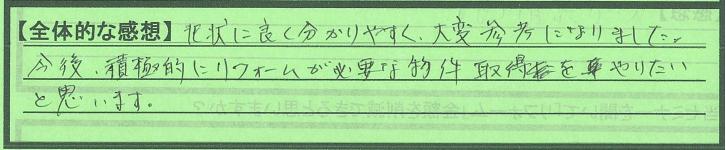 【全体的な感想】非常に良く分かりやすく、大変参考になりました。
今後、積極的にリフォームが必要な物件取得をやりたい
と思います。